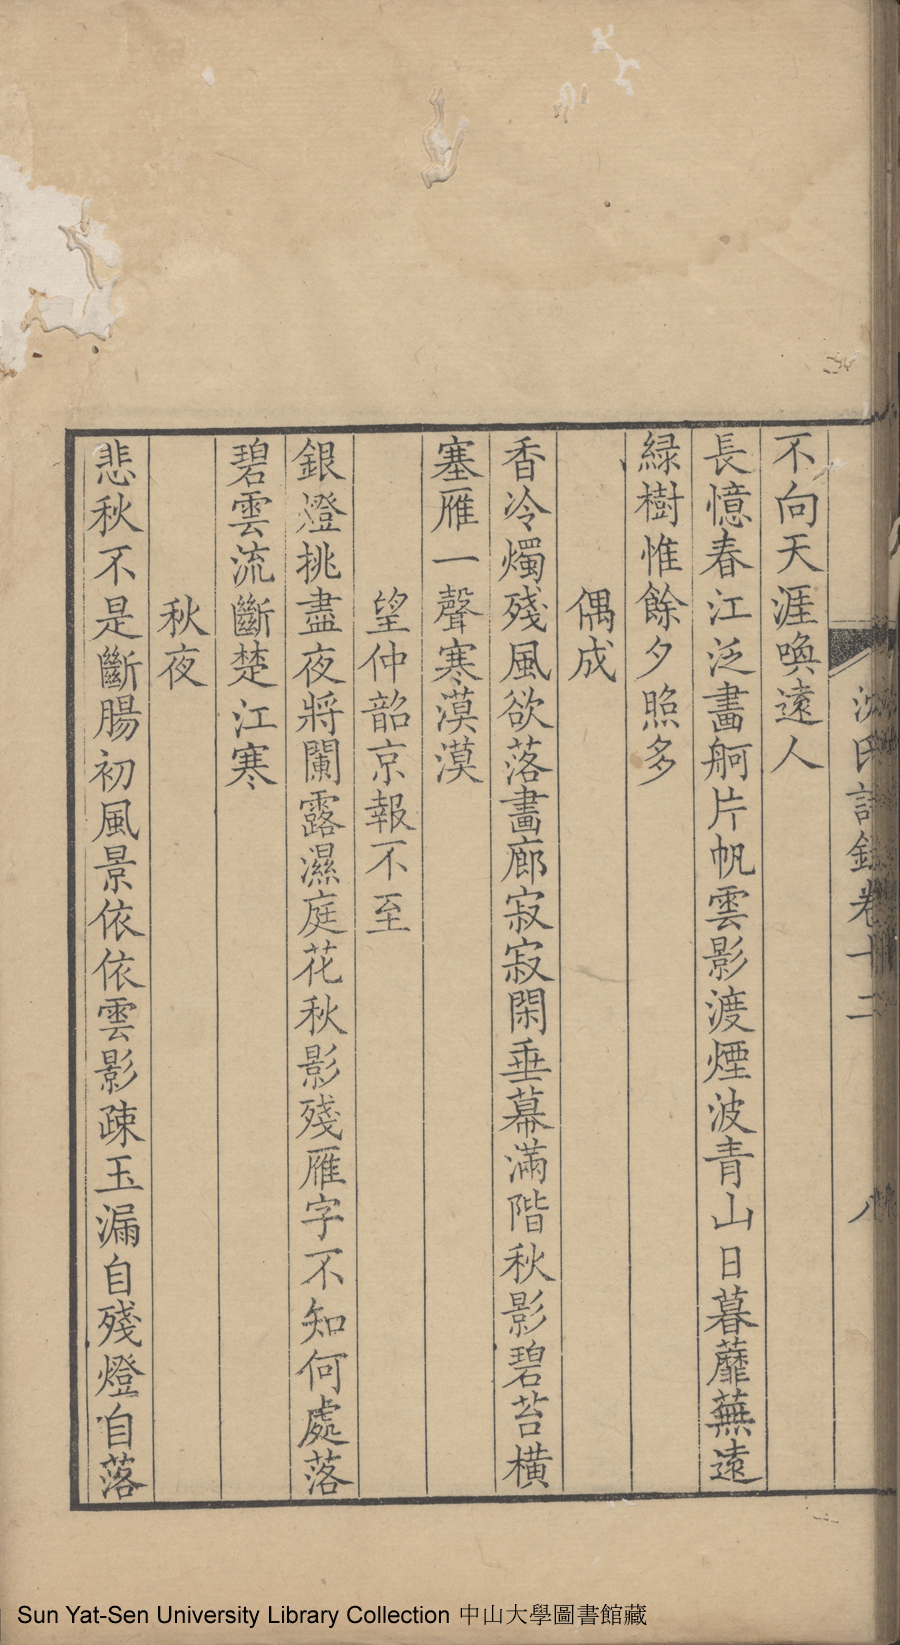 沈氏詩錄卷十二
八
不向天涯喚遠人
長憶春江泛畵舸片帆雲影渡煙波青山日暮蘼蕪遠
緑樹惟餘夕照多
偶成
香冷燭殘風欲落畵廊寂寂閑垂幕滿階秋影碧苔橫
塞雁一聲寒漠漠
望仲韶京報不至
銀燈挑盡夜將闌露濕庭花秋影殘雁字不知何處落
碧雲流斷楚江寒
秋夜
悲秋不是斷腸初風景依依雲影疎玉漏自殘燈自落
Sun Yat-Sen University Library Collection 中山大學圖書館藏